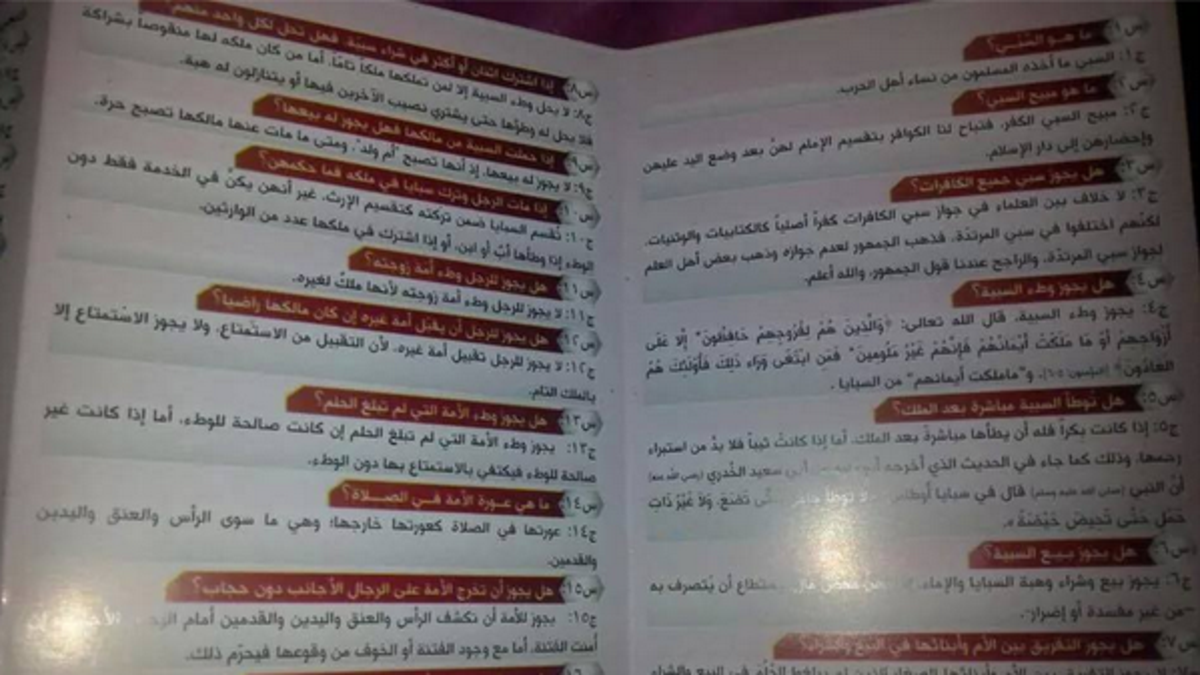 س١: ما هو السَّبي؟
ج١: السبي ما أخذه المسلمون من نساء أهل الحرب.
س٢: ما هو مبيح السبي؟
ج٢: مبيح السبي الكفر، فتباح لنا الكوافر بتقسيم الإمام لهنّ بعد وضع اليد عليهن
وإحضارهن إلى دار الإسلام.
س٣: هل يجوز سبي جميع الكافرات؟
ج٣: لا خلاف بين العلماء في جواز سبي الكافرات كفراً أصلياً كالكتابيات والوثنيات،
لكنّهم اختلفوا في سبي المرتدّة، فذهب الجمهور لعدم جوازه وذهب بعض أهل العلم
لجواز سبي المرتدّة، والراجح عندنا قول الجمهور، والله أعلم.
س٤: هل يجوز وطء السبية؟
ج٤: يجوز وطء السبية، قال الله تعالى: ﴿وَالَّذِينَ هُمْ لِفُرُوجِهِمْ حَافِظُونَ * إِلَّا عَلَى
أَزْوَاجِهِمْ أَوْ مَا مَلَكَتْ أَيْمَانُهُمْ فَإِنَّهُمْ غَيْرُ مَلُومِينَ * فَمَنِ ابْتَغَى وَرَاءَ ذَلِكَ فَأُولَئِكَ هُمُ
العَادُونَ﴾ و"ماملكت أيمانهم" من السبايا.
س٥: هل توطأ السبية مباشرة بعد الملك؟
ج٥: إذا كانت بكراً فله أن يطأها مباشرةً بعد الملك، أما إذا كانتْ ثيباً فلا بدّ من استبراء
رحمها، وذلك كما جاء في الحديث الذي أخرجه أبي سعيد الخُدري (رضي الله عنه)
أنّ النبي (صلى الله عليه وسلم) قال في سبايا أوطاس: لا توطأ حتَّى تَضَعَ، وَلَا غَيْرُ ذَاتِ
حَمْلٍ حَتَّى تَحِيضَ حَيْضَةً».
س٦: هل يجوز بيع السبية؟
ج٦: يجوز بيع وشراء وهبة السبايا والإماء، يُستطاع أن يُتصرف به
-من غير مفسدة أو إضرار-.
س٧: هل يجوز التفريق بين الأم وأبنائها في البيع والشراء؟
س٨: إذا اشترك اثنان أو أكثر في شراء سبيّة، فهل تحل لكل واحد منهم؟
ج٨: لا يحل وطء السبية إلا لمن تملكها ملكاً تامّاً، أما من كان ملكه لها منقوصاً بشراكة
فلا يحل له وطؤها حتى يشتري نصيب الآخرين فيها أو يتنازلون له هبة.
س٩: إذا حملت السبية من مالكها فهل يجوز له بيعها؟
ج٩: لا يجوز له بيعها، إذ أنها تصبح "أم ولد"، ومتى ما مات عنها مالكها تصبح حرة.
س١٠: إذا مات الرجل وترك سبايا في ملكه فما حكمهن؟
ج١٠: تُقسم السبايا ضمن تركته كتقسيم الإرث، غير أنهن يكنّ في الخدمة فقط دون
الوطء إذا وطأها أبٌ أو ابن، أو إذا اشترك في ملكها عدد من الوارثين.
س١١: هل يجوز للرجل وطء أمة زوجته؟
ج١١: لا يجوز للرجل وطء أمة زوجته لأنها ملكٌ لغيره.
س١٢: هل يجوز للرجل أن يقبّل أمة غيره إن كان مالكها راضيا؟
ج١٢: لا يجوز للرجل تقبيل أمة غيره، لأن التقبيل من الاستمتاع، ولا يجوز الاستمتاع إلا
بالملك التام.
س١٣: هل يجوز وطء الأمة التي لم تبلغ الحلم؟
ج١٣: يجوز وطء الأمة التي لم تبلغ الحلم إن كانت صالحة للوطء، أما إذا كانت غير
صالحة للوطء فيكتفي بالاستمتاع بها دون الوطء.
س١٤: ما هي عورة الأمة في الصلاة؟
ج١٤: عورتها في الصلاة كعورتها خارجها؛ وهي ما سوى الرأس والعنق واليدين
والقدمين.
س١٥: هل يجوز أن تخرج الأمة على الرجال الأجانب دون حجاب؟
ج١٥: يجوز للأمة أن تكشف الرأس والعنق واليدين والقدمين أمام
أمنت الفتنة، أما مع وجود الفتنة أو الخوف من وقوعها فيحرّم ذلك.